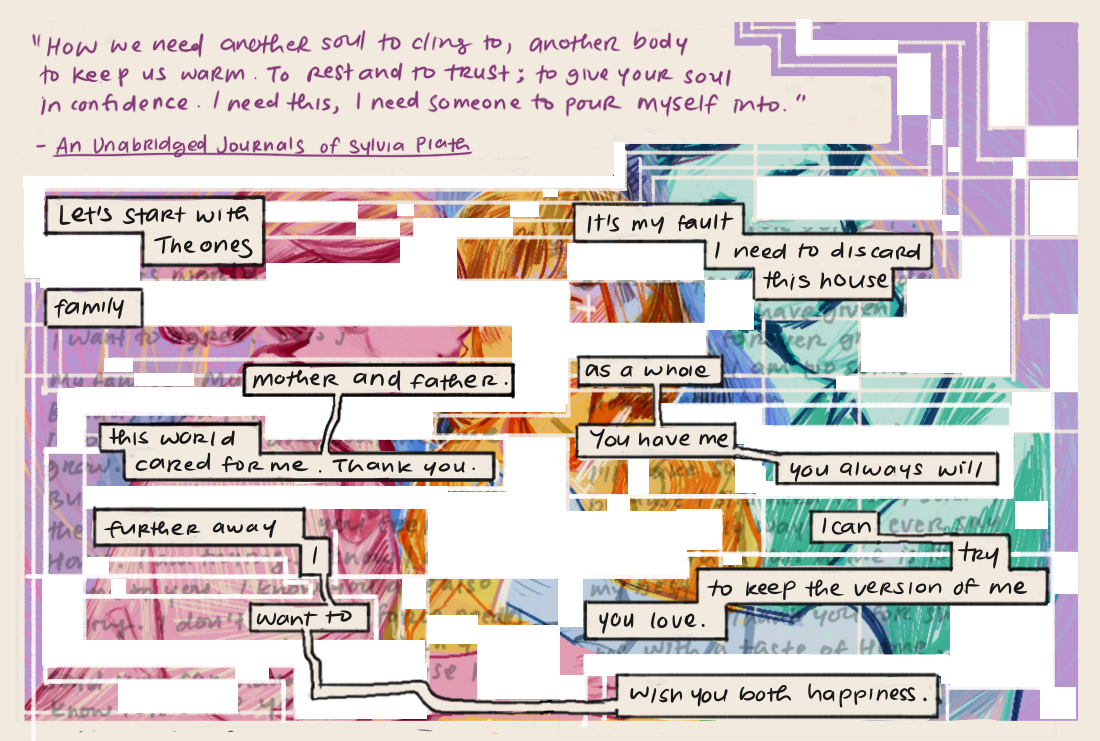 "How we need another soul to cling to, another body
to keep us warm. To rest and to trust; to give your soul
in confidence. I need this, I need someone to pour myself into."
- An Unabridged Journals of Sylvia Plath
Let's start with
The ones
family
I want to agree
My fam
mother and father.
this world
cared for me. Thank you.
grow.
Bu
the
further away
I
I know
want to
I don't
know
It's my fault
I need to discard
this house
have given
forever
as a whole
You have me
you always will
I can
ever say
try
to keep the version of me
you love.
Thank you for
with a taste of Home
wish you both happiness.